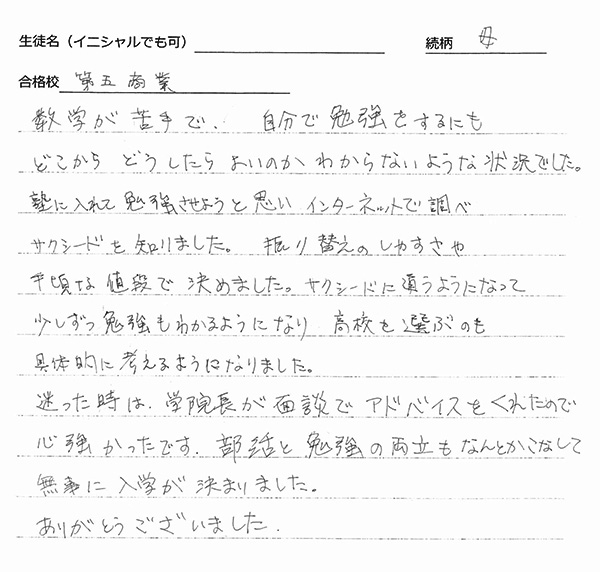 生徒名（イニシャルでも可）
続柄 母
合格校 第五商業
数学が苦手で、自分で勉強をするにも
どこから どうしたら よいのか わからないような状況でした。
塾に入れて勉強させようと思い インターネットで調べ
サクシードを知りました。 振り替えのしやすさや
手頃な値段で決めました。サクシードに通うようになって
少しずつ勉強もわかるようになり 高校を選ぶのも
具体的に考えるようになりました。
迷った時は、学院長が面談でアドバイスをくれたので
心強かったです。部活と勉強の両立もなんとかこなして
無事に入学が決まりました。
ありがとうございました。